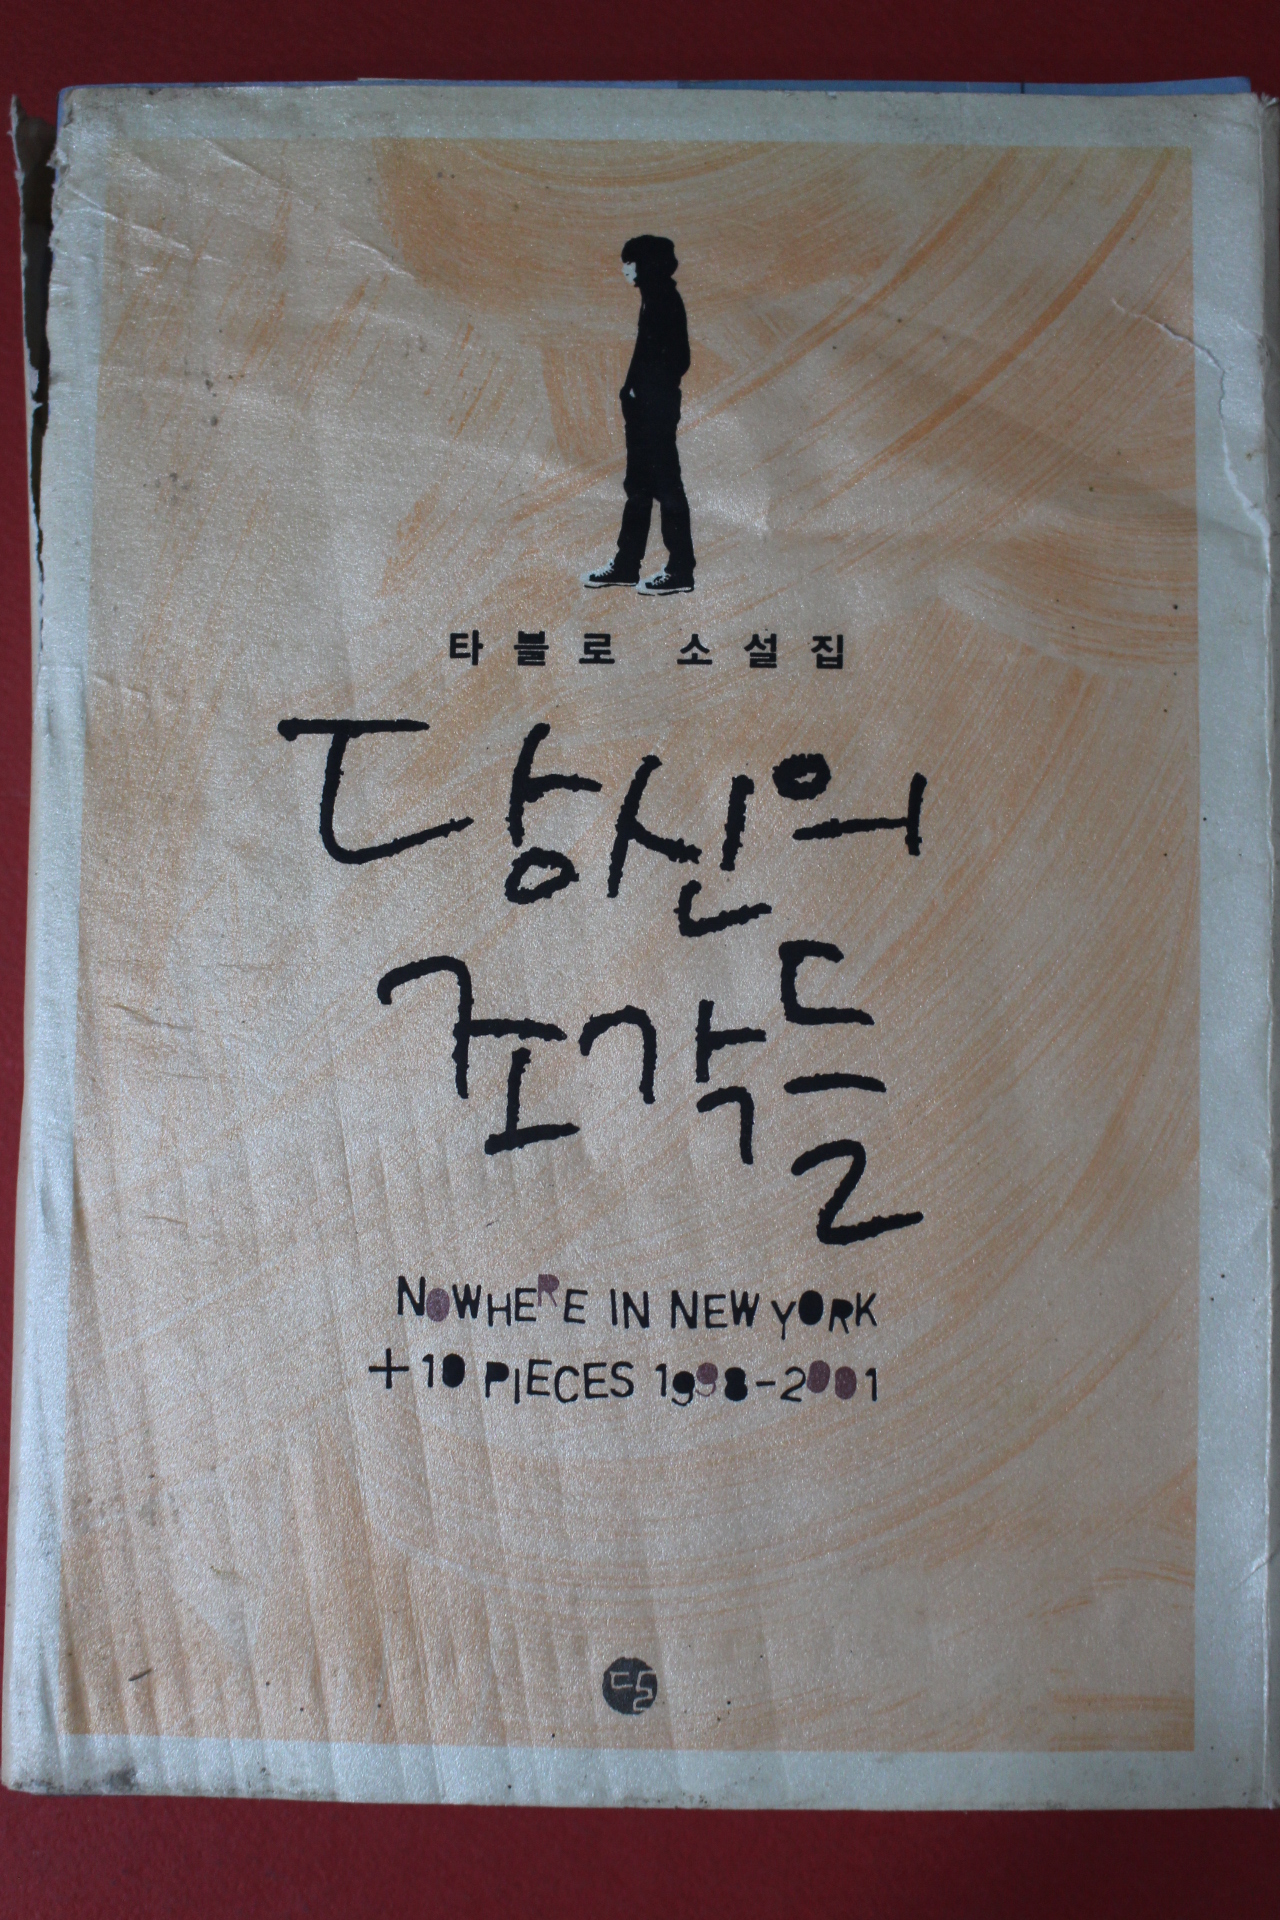 타블로 소설집
당신의
조각들
NOWHERE IN NEW YORK
+10 PIECES 1998-2001
달